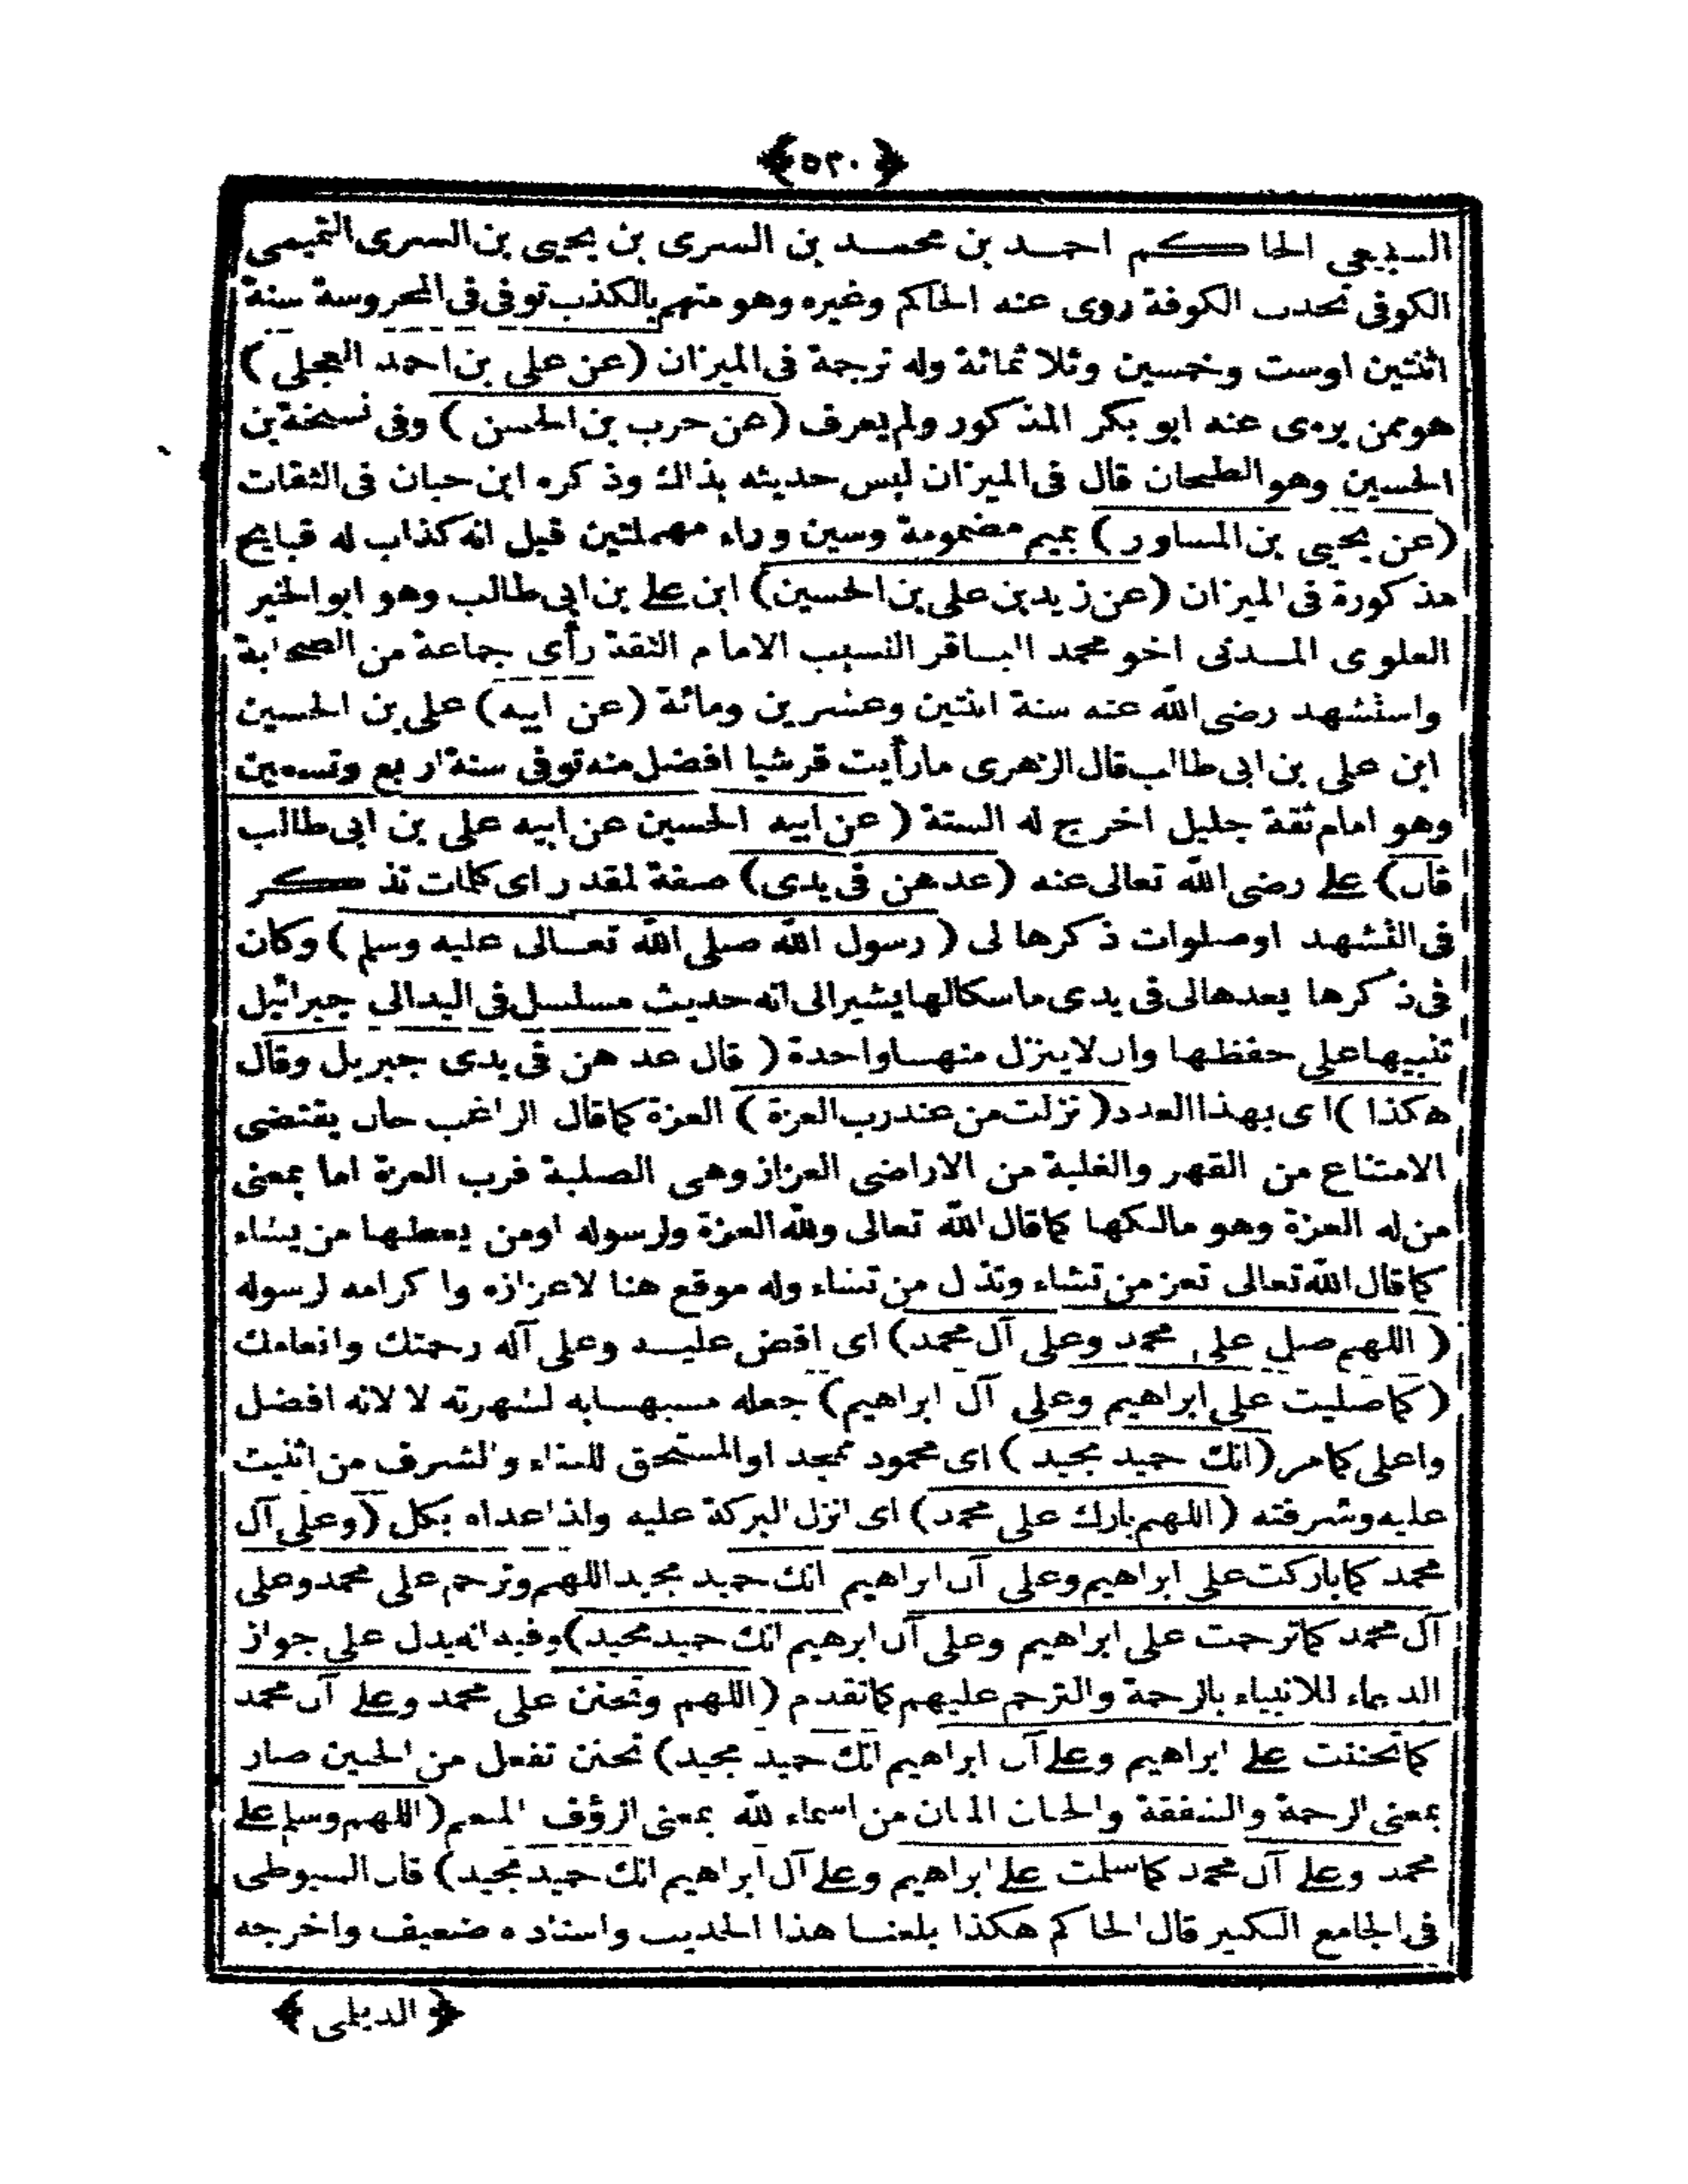 ﴿٥٣٠﴾
السبيعي الحاكم احمد بن محمد بن السرى بن يحيى بن السرى التميمى
الكوفى محدب الكوفة روى عنه الحاكم وغيره وهو متهم بالكذب توفى فى المحروسة سنة
اثنتين اوست وخمسين وثلاثمائة وله ترجمة فى الميزان (عن على بن احمد العجلى)
هو ممن يروى عنه ابو بكر المذكور ولم يعرف (عن حرب بن الحسن) وفى نسخة بن
الحسين وهو الطحان قال فى الميزان ليس حديثه بذاك وذكره ابن حبان فى الثقات
(عن يحيى بن المساور) بميم مضمومة وسين وراء مهملتين قيل انه كذاب له قبايح
مذكورة فى الميزان (عن زيد بن على بن الحسين) ابن على بن ابى طالب وهو ابو الخير
العلوى المدنى اخو محمد الباقر النسيب الامام الثقة رأى جماعة من الصحابة
واستشهد رضى الله عنه سنة اثنتين وعشرين ومائة (عن ابيه) على بن الحسين
ابن على بن ابى طالب قال الزهرى مارأيت قرشيا افضل منه توفى سنة اربع وتسعين
وهو امام ثقة جليل اخرج له الستة (عن ابيه الحسين عن ابيه على بن ابى طالب
قال) على رضى الله تعالى عنه (عدهن فى يدى) صفة لمقدر اى كلمات تذكر
فى التشهد اوصلوات ذكرها لى (رسول الله صلى الله تعالى عليه وسلم) وكان
فى ذكرها يعدها لى فى يدى ماسكالها يشير الى انه حديث مسلسل فى اليد الى جبرائيل
تنبيها على حفظها وان لا ينزل منها واحدة (قال عدهن فى يدى جبريل وقال
هكذا) اى بهذا العدد (نزلت من عند رب العزة) العزة كما قال الراغب حال يقتضى
الامتناع من القهر والغلبة من الاراضى العزاز وهى الصلبة فرب العزة اما بمعنى
من له العزة وهو مالكها كما قال الله تعالى ولله العزة ولرسوله اومن يعطيها من يشاء
كما قال الله تعالى تعز من تشاء وتذل من تشاء وله موقع هنا لاعزازه واكرامه لرسوله
(اللهم صل على محمد وعلى آل محمد) اى افض عليه وعلى آله رحمتك وانعامك
(كما صليت على ابراهيم وعلى آل ابراهيم) جعله مسبهابه لشهرته لا لانه افضل
واعلى كمامر (انك حميد مجيد) اى محمود ممجد او المستحق للثناء والشرف من اثنيت
عليه وشرفته (اللهم بارك على محمد) اى انزل البركة عليه ولذا عداه بكل (وعلى آل
محمد كما باركت على ابراهيم وعلى آل ابراهيم انك حميد مجيد اللهم وترحم على محمد وعلى
آل محمد كما ترحمت على ابراهيم وعلى آل ابرهيم انك حميد مجيد) وفيه انه يدل على جواز
الدعاء للانبياء بالرحمة والترحم عليهم كما تقدم (اللهم وتحنن على محمد وعلى آل محمد
كما تحننت على ابراهيم وعلى آل ابراهيم انك حميد مجيد) تحنن تفعل من الحنين صار
بمعنى الرحمة والشفقة والحنان المنان من اسماء لله بمعنى الرؤف المنعم (اللهم وسلم على
محمد وعلى آل محمد كما سلمت على ابراهيم وعلى آل ابراهيم انك حميد مجيد) قال السيوطى
فى الجامع الكبير قال الحاكم هكذا بلغنا هذا الحديث واسناده ضعيف واخرجه
﴿الديلمى﴾